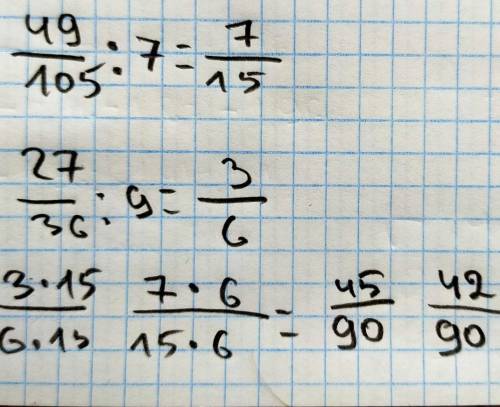 49/105 : 7 = 7/15
27/36 : 9 = 3/6
3·15/6·15 7·6/15·6 = 45/90 42/90